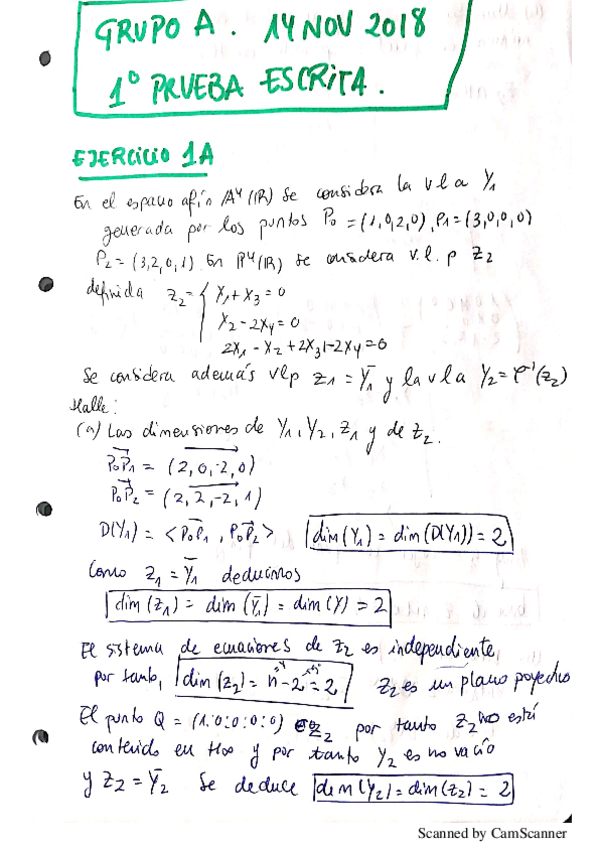 GRUPO A. 14 NOV 2018
1º PRUEBA ESCRITA.
EJERCICIO 1A
En el espacio afín A⁴(IR) se considera la v l a Y₁
generada por los puntos P₀ = (1,0,2,0), P₁ = (3,0,0,0)
P₂ = (3,2,0,1) En P⁴(IR) se considera v. l. p Z₂
definida Z₂ = { X₁ + X₃ = 0
X₂ - 2X₄ = 0
2X₁ - X₂ + 2X₃ + 2X₄ = 0
Se considera además vlp Z₁ = Y̅₁ y la v l a Y₂ = φ⁻¹(Z₂)
Halle:
(a) Las dimensiones de Y₁, Y₂, Z₁ y de Z₂.
P₀P₁ = (2,0,-2,0)
P₀P₂ = (2,2,-2,1)
D(Y₁) = < P₀P₁, P₀P₂ > dim(Y₁) = dim(D(Y₁)) = 2
Como Z₁ = Y̅₁ deducimos
dim(Z₁) = dim(Y̅₁) = dim(Y) = 2
El sistema de ecuaciones de Z₂ es independiente,
por tanto, dim(Z₂) = n - 2 = 2 Z₂ es un plano
El punto Q = (1:0:0:0:0) ∈ Z₂ por tanto Z₂ no está
contenido en H∞ y por tanto Y₂ es no vacío
y Z₂ = Y̅₂ Se deduce dim(Y₂) = dim(Z₂) = 2
Scanned by CamScanner